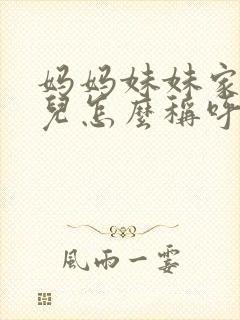 妈妈妹妹家
兒怎麼稱呼
風雨一霎